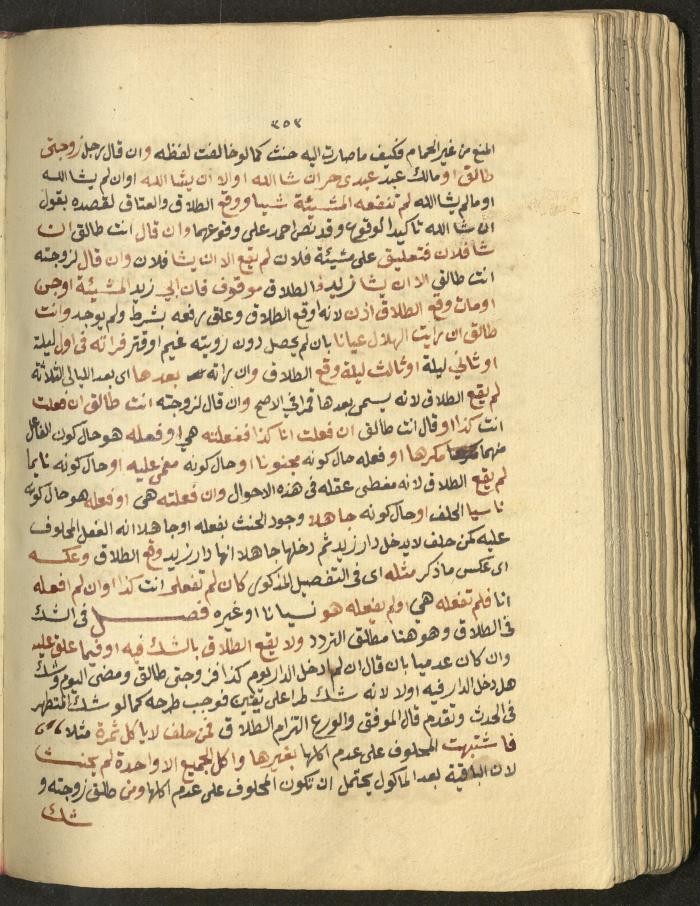 ٣٥٣
المنع من غير الحمام فكيف ما صارت اليه حنث كما لو خالفت لفظه وان قال رجل زوجتى
طالق او مالك عبد عبدى حر ان شا الله او الا ان يشا الله او ان لم يشا الله
او ما لم يشا الله لم تنفعه المشيئة شيا ووقع الطلاق والعتاق لقصده بقول
ان شا الله تاكيد الوقوع وقد نص احمد على وقوعهما وان قال انت طالق ان
شا فلان فتعليق على مشيئة فلان لم يقع الا ان يشا فلان وان قال لزوجته
انت طالق الا ان يشا زيد فالطلاق موقوف فان ابى زيد المشيئة او جن
او مات وقع الطلاق اذن لانه اوقع الطلاق وعلق رفعه بشرط ولم يوجد وانت
طالق ان رايت الهلال عيانا بان لم يحصل دون رويته غيم او قتر فراته فى اول ليلة
او ثانى ليلة او ثالث ليلة وقع الطلاق وان راته بعدها اى بعد الليالى الثلاثة
لم يقع الطلاق لانه يسمى بعدها قمرا فى الاصح وان قال لزوجته انت طالق ان فعلت
انت كذا او قال انت طالق ان فعلت انا كذا ففعلته هى او فعله هو حال كون الفاعل
منهما مكرها او فعله حال كونه مجنونا او حال كونه مغمى عليه او حال كونه نايما
لم يقع الطلاق لانه مغطى عقله فى هذه الاحوال وان فعلته هى او فعله هو حال كونه
ناسيا الحلف او حال كونه جاهلا وجود الحنث بفعله او جاهلا انه الفعل المحلوف
عليه كمن حلف لا يدخل دار زيد ثم دخلها جاهلا انها دار زيد وقع الطلاق وعكسه
اى عكس ما ذكر مثله اى فى التفصيل المذكور كان لم تفعلى انت كذا او ان لم افعله
انا فلم تفعله هى او لم يفعله هو نسيانا او غيره فصل فى الشك
فى الطلاق وهو هنا مطلق التردد ولا يقع الطلاق بالشك فيه او فيما علق عليه
وان كان عدميا بان قال ان لم ادخل الدار يوم كذا فزوجتى طالق ومضى اليوم وشك
هل دخل الدار فيه اولا لانه شك طرا على يقين فوجب طرحه كما لو شك المتطهر
فى الحدث وتقدم قال الموفق والورع التزام الطلاق فمن حلف لا ياكل ثمرة مثلا
فاشتبهت المحلوف على عدم اكلها بغيرها واكل الجميع الا واحدة لم يحنث
لان الباقية بعد الماكول يحتمل ان تكون المحلوف على عدم اكلها ومن طلق زوجته و
شك